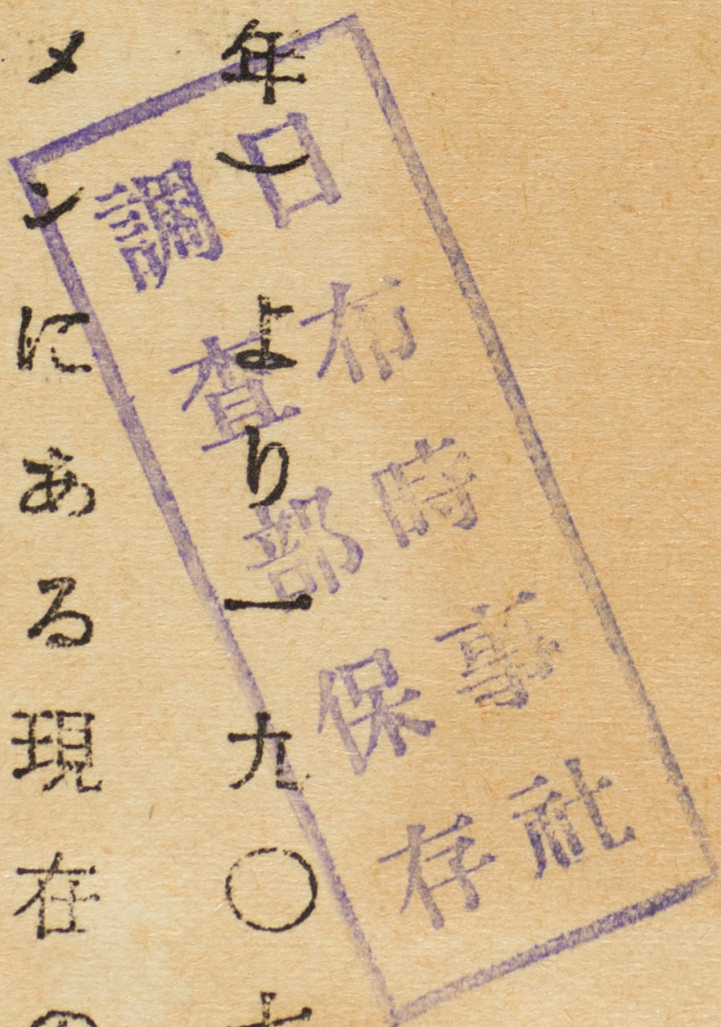 日布時事社
調査部保存
年)より一九〇
メンにある現在の